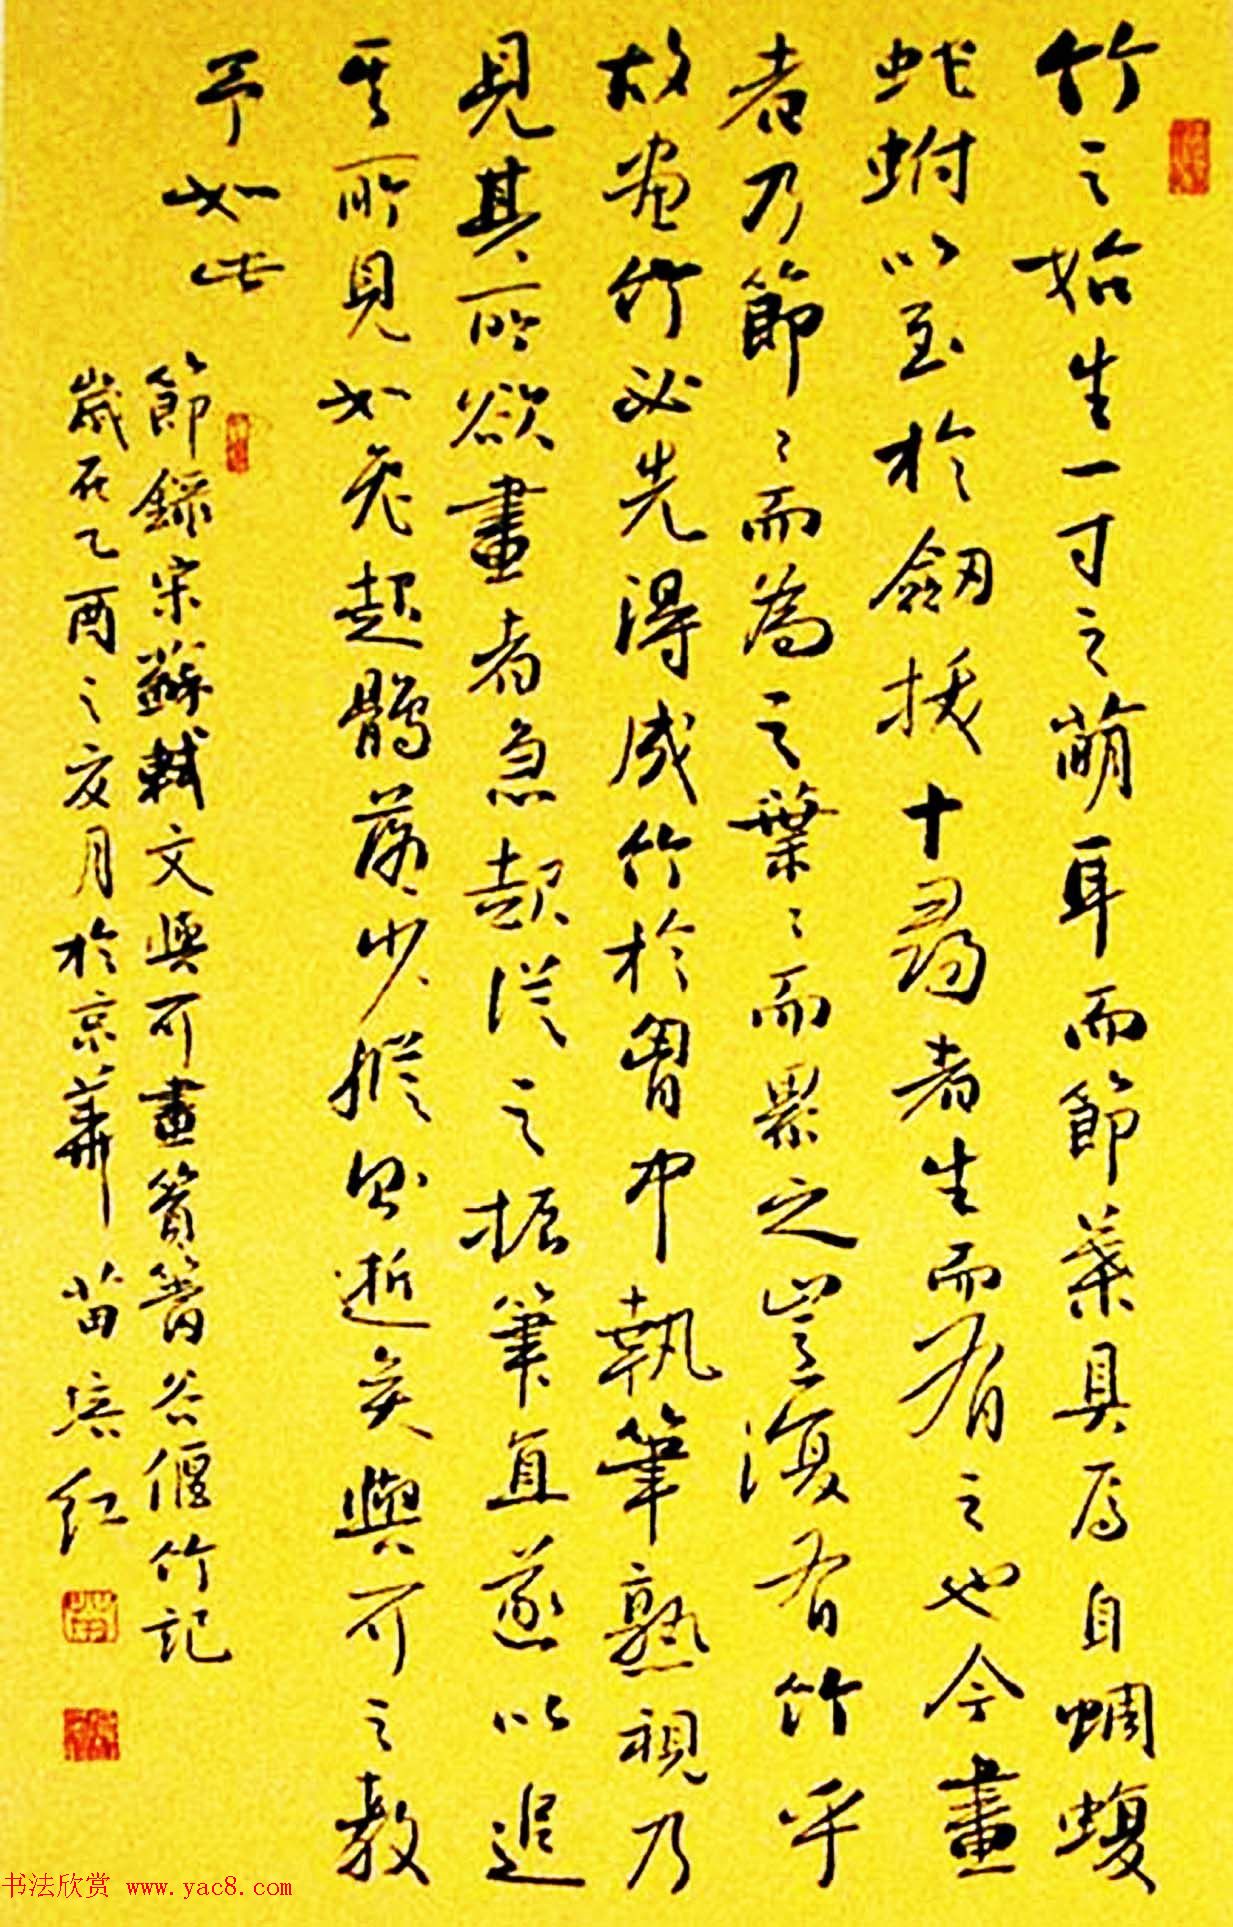 竹之始生一寸之萌耳而節葉具焉自蜩蝮
蛇蚹以至於劒拔十尋者生而有之也今畫
者乃節〻而為之葉〻而累之豈復有竹乎
故畫竹必先得成竹於胷中執筆熟視乃
見其所欲畫者急起從之振筆直遂以追
其所見如兔起鶻落少縱則逝矣與可之教
予如此
節錄宋蘇軾文與可畫篔簹谷偃竹記
歲在乙酉之夏月於京華苗培紅
书法欣赏 www.yac8.com